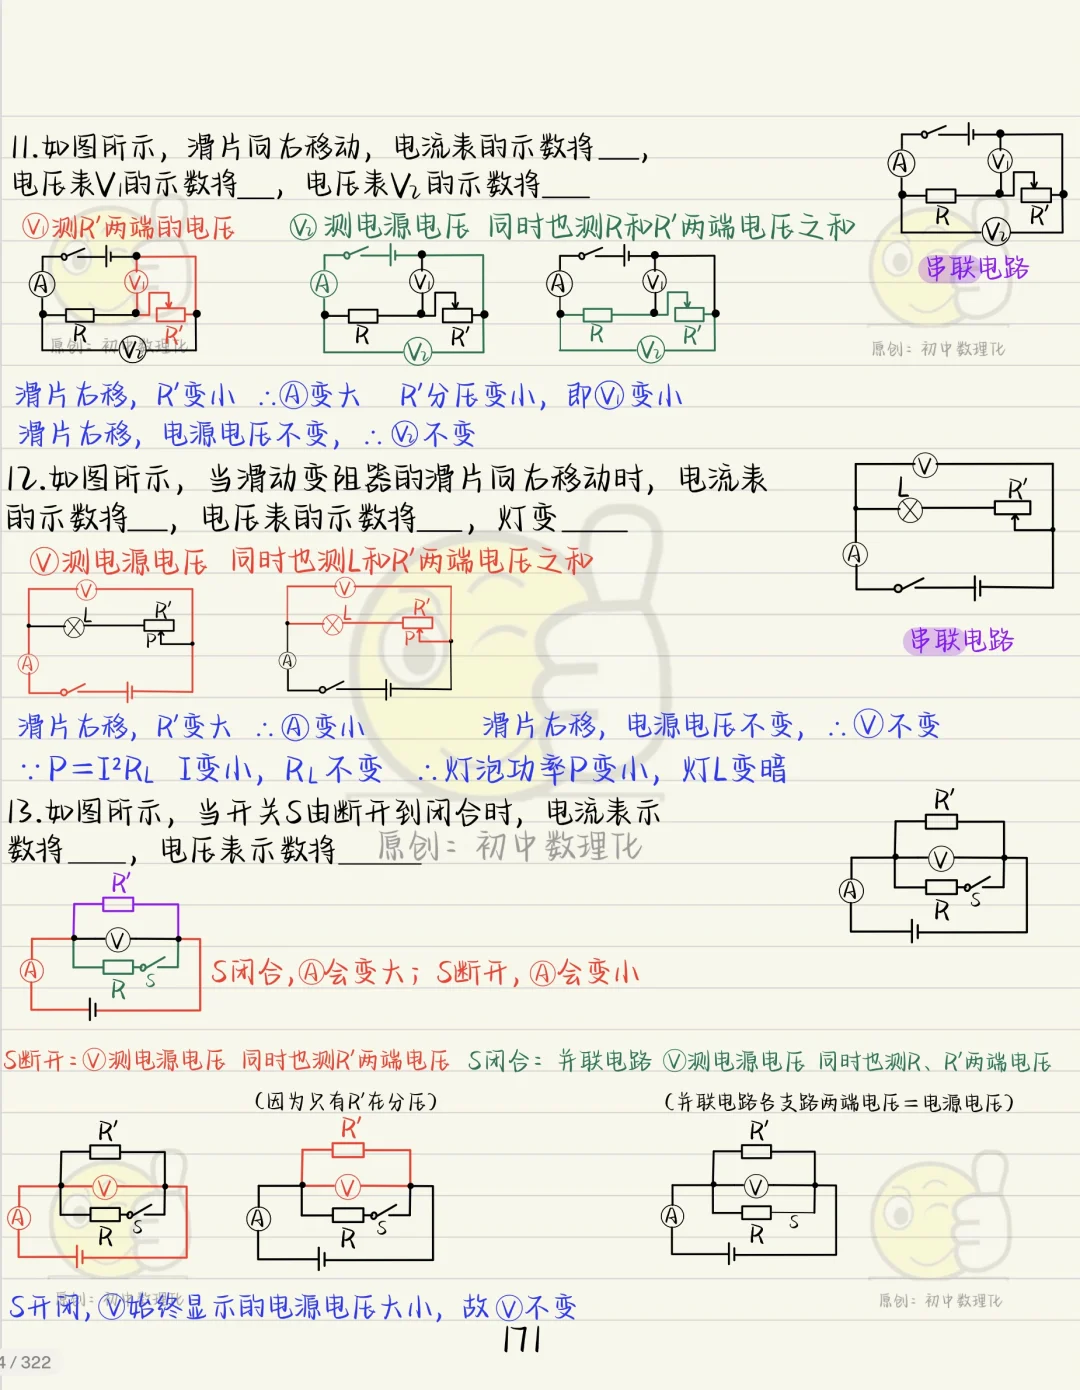 11.如图所示，滑片向右移动，电流表的示数将___，
电压表V₁的示数将___，电压表V₂的示数将____
Ⓥ₁测R′两端的电压 Ⓥ₂测电源电压 同时也测R和R′两端电压之和
A V₁ R R′ V₂
串联电路
A V₁ R R′ V₂
A V₁ R R′ V₂
A V₁ R R′ V₂
原创：初中数理化
原创：初中数理化
滑片右移，R′变小 ∴Ⓐ变大 R′分压变小，即Ⓥ₁变小
滑片右移，电源电压不变，∴Ⓥ₂不变
12.如图所示，当滑动变阻器的滑片向右移动时，电流表
的示数将___，电压表的示数将___，灯变____
V L R′ A
Ⓥ测电源电压 同时也测L和R′两端电压之和
V L R′ P A
V L R′ P A
串联电路
滑片右移，R′变大 ∴Ⓐ变小 滑片右移，电源电压不变，∴Ⓥ不变
∵P=I²RL I变小，RL不变 ∴灯泡功率P变小，灯L变暗
13.如图所示，当开关S由断开到闭合时，电流表示
数将____，电压表示数将_____
原创：初中数理化
R′ V A R S
R′ V A R S
S闭合，Ⓐ会变大；S断开，Ⓐ会变小
S断开：Ⓥ测电源电压 同时也测R′两端电压 S闭合：并联电路 Ⓥ测电源电压 同时也测R、R′两端电压
(因为只有R′在分压) (并联电路各支路两端电压=电源电压)
R′ V A R S
R′ V A R S
R′ V A R S
原创：初中数理化
原创：初中数理化
S开闭，Ⓥ始终显示的电源电压大小，故Ⓥ不变
171
4 / 322